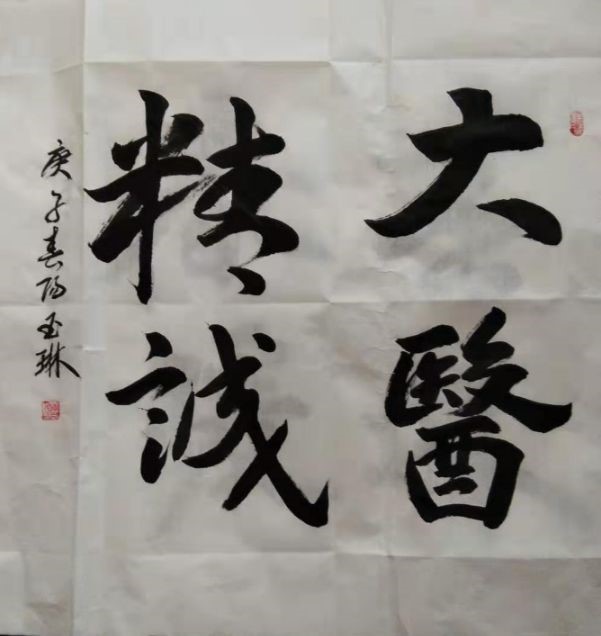 大醫
精誠
庚子春陽玉琳